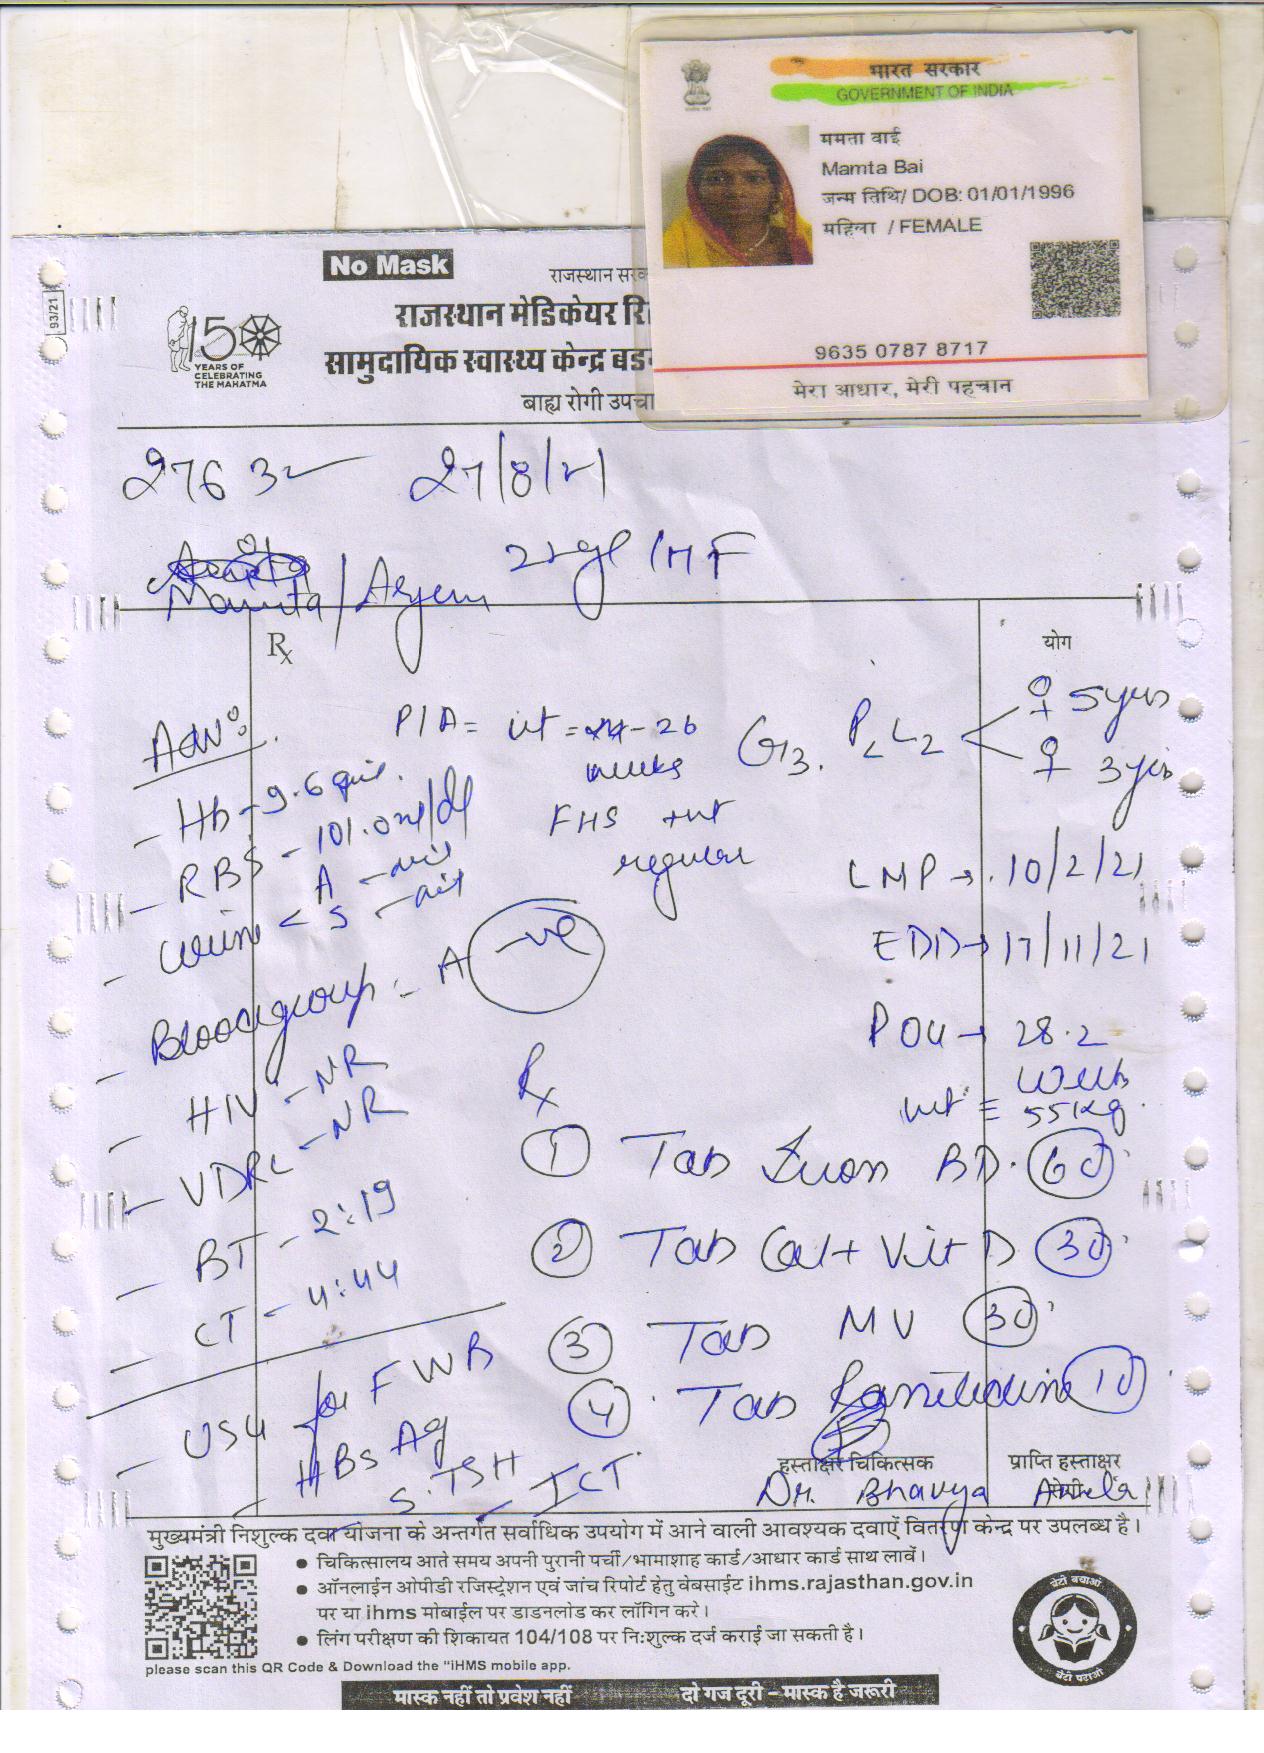 भारत सरकार
GOVERNMENT OF INDIA
ममता वाई
Mamta Bai
जन्म तिथि/ DOB: 01/01/1996
महिला / FEMALE
9635 0787 8717
मेरा आधार, मेरी पहचान
No Mask
93/21
राजस्थान सरक
राजस्थान मेडिकेयर रि
150
YEARS OF
CELEBRATING
THE MAHATMA
सामुदायिक स्वास्थ्य केन्द्र बड
बाह्य रोगी उपचा
27632 27/8/21
Mamta /
Rx
योग
P/A = ut = 26 weeks
G3. P2 L2 < ♀ 5yrs
♀ 3yrs
FHS +nt
regular
Adv:
- Hb - 9.6
- RBS - 101.0 mg/dl
- Urine < A - nil
S - nil
- Blood group - A -ve
- HIV - NR
- VDRL - NR
- BT - 2:19
- CT - 4:44
LMP → 10/2/21
EDD → 17/11/21
POG → 28.2 weeks
wt = 55kg.
Rx
① Tab Iron BD. 60
② Tab Cal + Vit D 30
③ Tab MV 30
④ Tab Ranitidine 10
- USG for FWB
- HBsAg
- S. TSH
- ICT
हस्ताक्षर चिकित्सक
प्राप्ति हस्ताक्षर
रोगी
Dr. Bhavya
मुख्यमंत्री निशुल्क दवा योजना के अन्तर्गत सर्वाधिक उपयोग में आने वाली आवश्यक दवाऐं वितरण केन्द्र पर उपलब्ध है।
• चिकित्सालय आते समय अपनी पुरानी पर्ची/भामाशाह कार्ड/आधार कार्ड साथ लावें।
• ऑनलाईन ओपीडी रजिस्ट्रेशन एवं जांच रिपोर्ट हेतु वेबसाईट ihms.rajasthan.gov.in
पर या ihms मोबाईल पर डाडनलोड कर लॉगिन करे।
• लिंग परीक्षण की शिकायत 104/108 पर निःशुल्क दर्ज कराई जा सकती है।
please scan this QR Code & Download the "iHMS mobile app.
बेटी बचाओ
बेटी पढाओ
मास्क नहीं तो प्रवेश नहीं
दो गज दूरी – मास्क है जरूरी